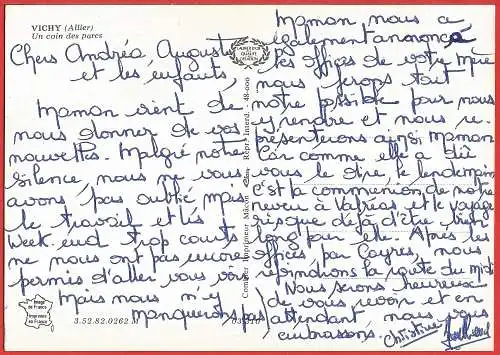 VICHY (Allier)
Un coin des parcs
Chers Andréa Auguste
et les enfants,
Maman vient de
nous donner de vos
nouvelles. Malgré notre
silence nous ne vous
avons pas oublié mais
le travail et les
Week-end trop courts
ne nous ont pas encore
permis d'aller vous voir
mais nous n'y
manquerons pas
Image
de France
Imprimée
en France
3.52.82.0262 M
LABEL D'OR
DE QUALITÉ
Combier Imprimeur Mâcon
Repr. Interd. - 48-000
Maman nous a
également annoncé
les offices de votre mère
nous ferons tout
notre possible pour nous
y rendre et nous re-
présenterons ainsi maman
car comme elle a dû
vous le dire, le lendemain
c'est la communion de notre
neveu à et le voyage
risque déjà d'être bien
long pour elle. Après les
offices par Cayres, nous
rejoindrons la route du midi
Nous serons heureux
de vous revoir et en
attendant nous vous
embrassons. Christine